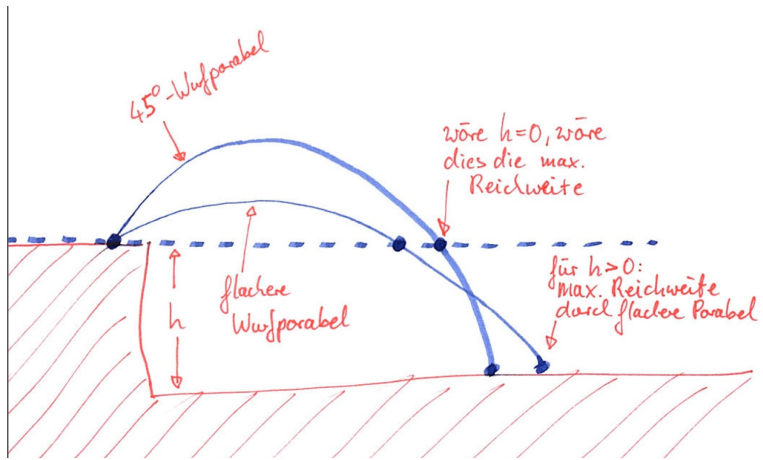 45°-Wurfparabel
wäre h=0, wäre
dies die max.
Reichweite
flachere
Wurfparabel
h
für h>0:
max. Reichweite
durch flachere Parabel